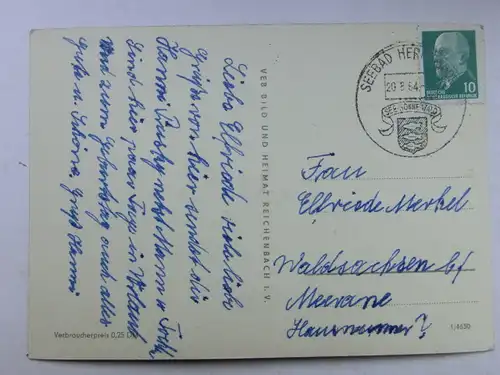 Liebe Elfriede viele liebe
Grüße von hier sendet dir
Hanni nebst Mann u. Tochter
Sind hier paar Tage in Urlaub
Und zum Geburtstag auch alles
Gute u. Gruß Hanni
VEB BILD UND HEIMAT REICHENBACH I. V.
Verbraucherpreis 0,25 DM
SEEBAD HER
20 8 64
10
Frau
Elfriede Merkel
Waldsachsen bei
Meerane
Hausnummer?
1/4630